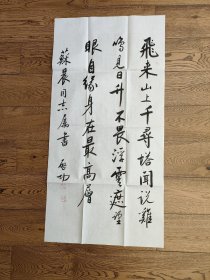 飛来山上千尋塔聞説雞
鳴見日升不畏浮雲遮望
眼自緣身在最高層
蘇晨同志属書 啓功